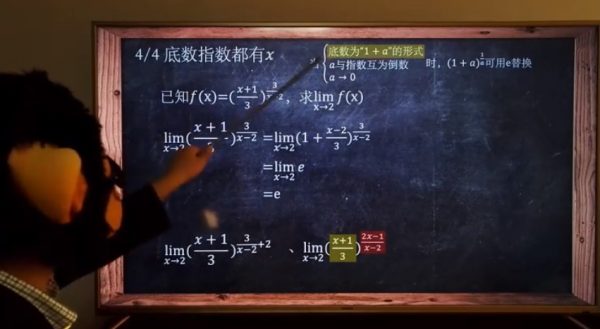 4/4 底数指数都有x
底数为“1 + a”的形式
a与指数互为倒数
a → 0
时，(1 + a)^(1/a)可用e替换
已知f(x)=((x+1)/3)^(3/(x−2))，求lim_(x→2) f(x)
lim_(x→2)((x+1)/3)^(3/(x−2)) =lim_(x→2)(1 + (x−2)/3)^(3/(x−2))
=lim_(x→2) e
=e
lim_(x→2)((x+1)/3)^(3/(x−2)+2) 、lim_(x→2)((x+1)/3)^((2x−1)/(x−2))